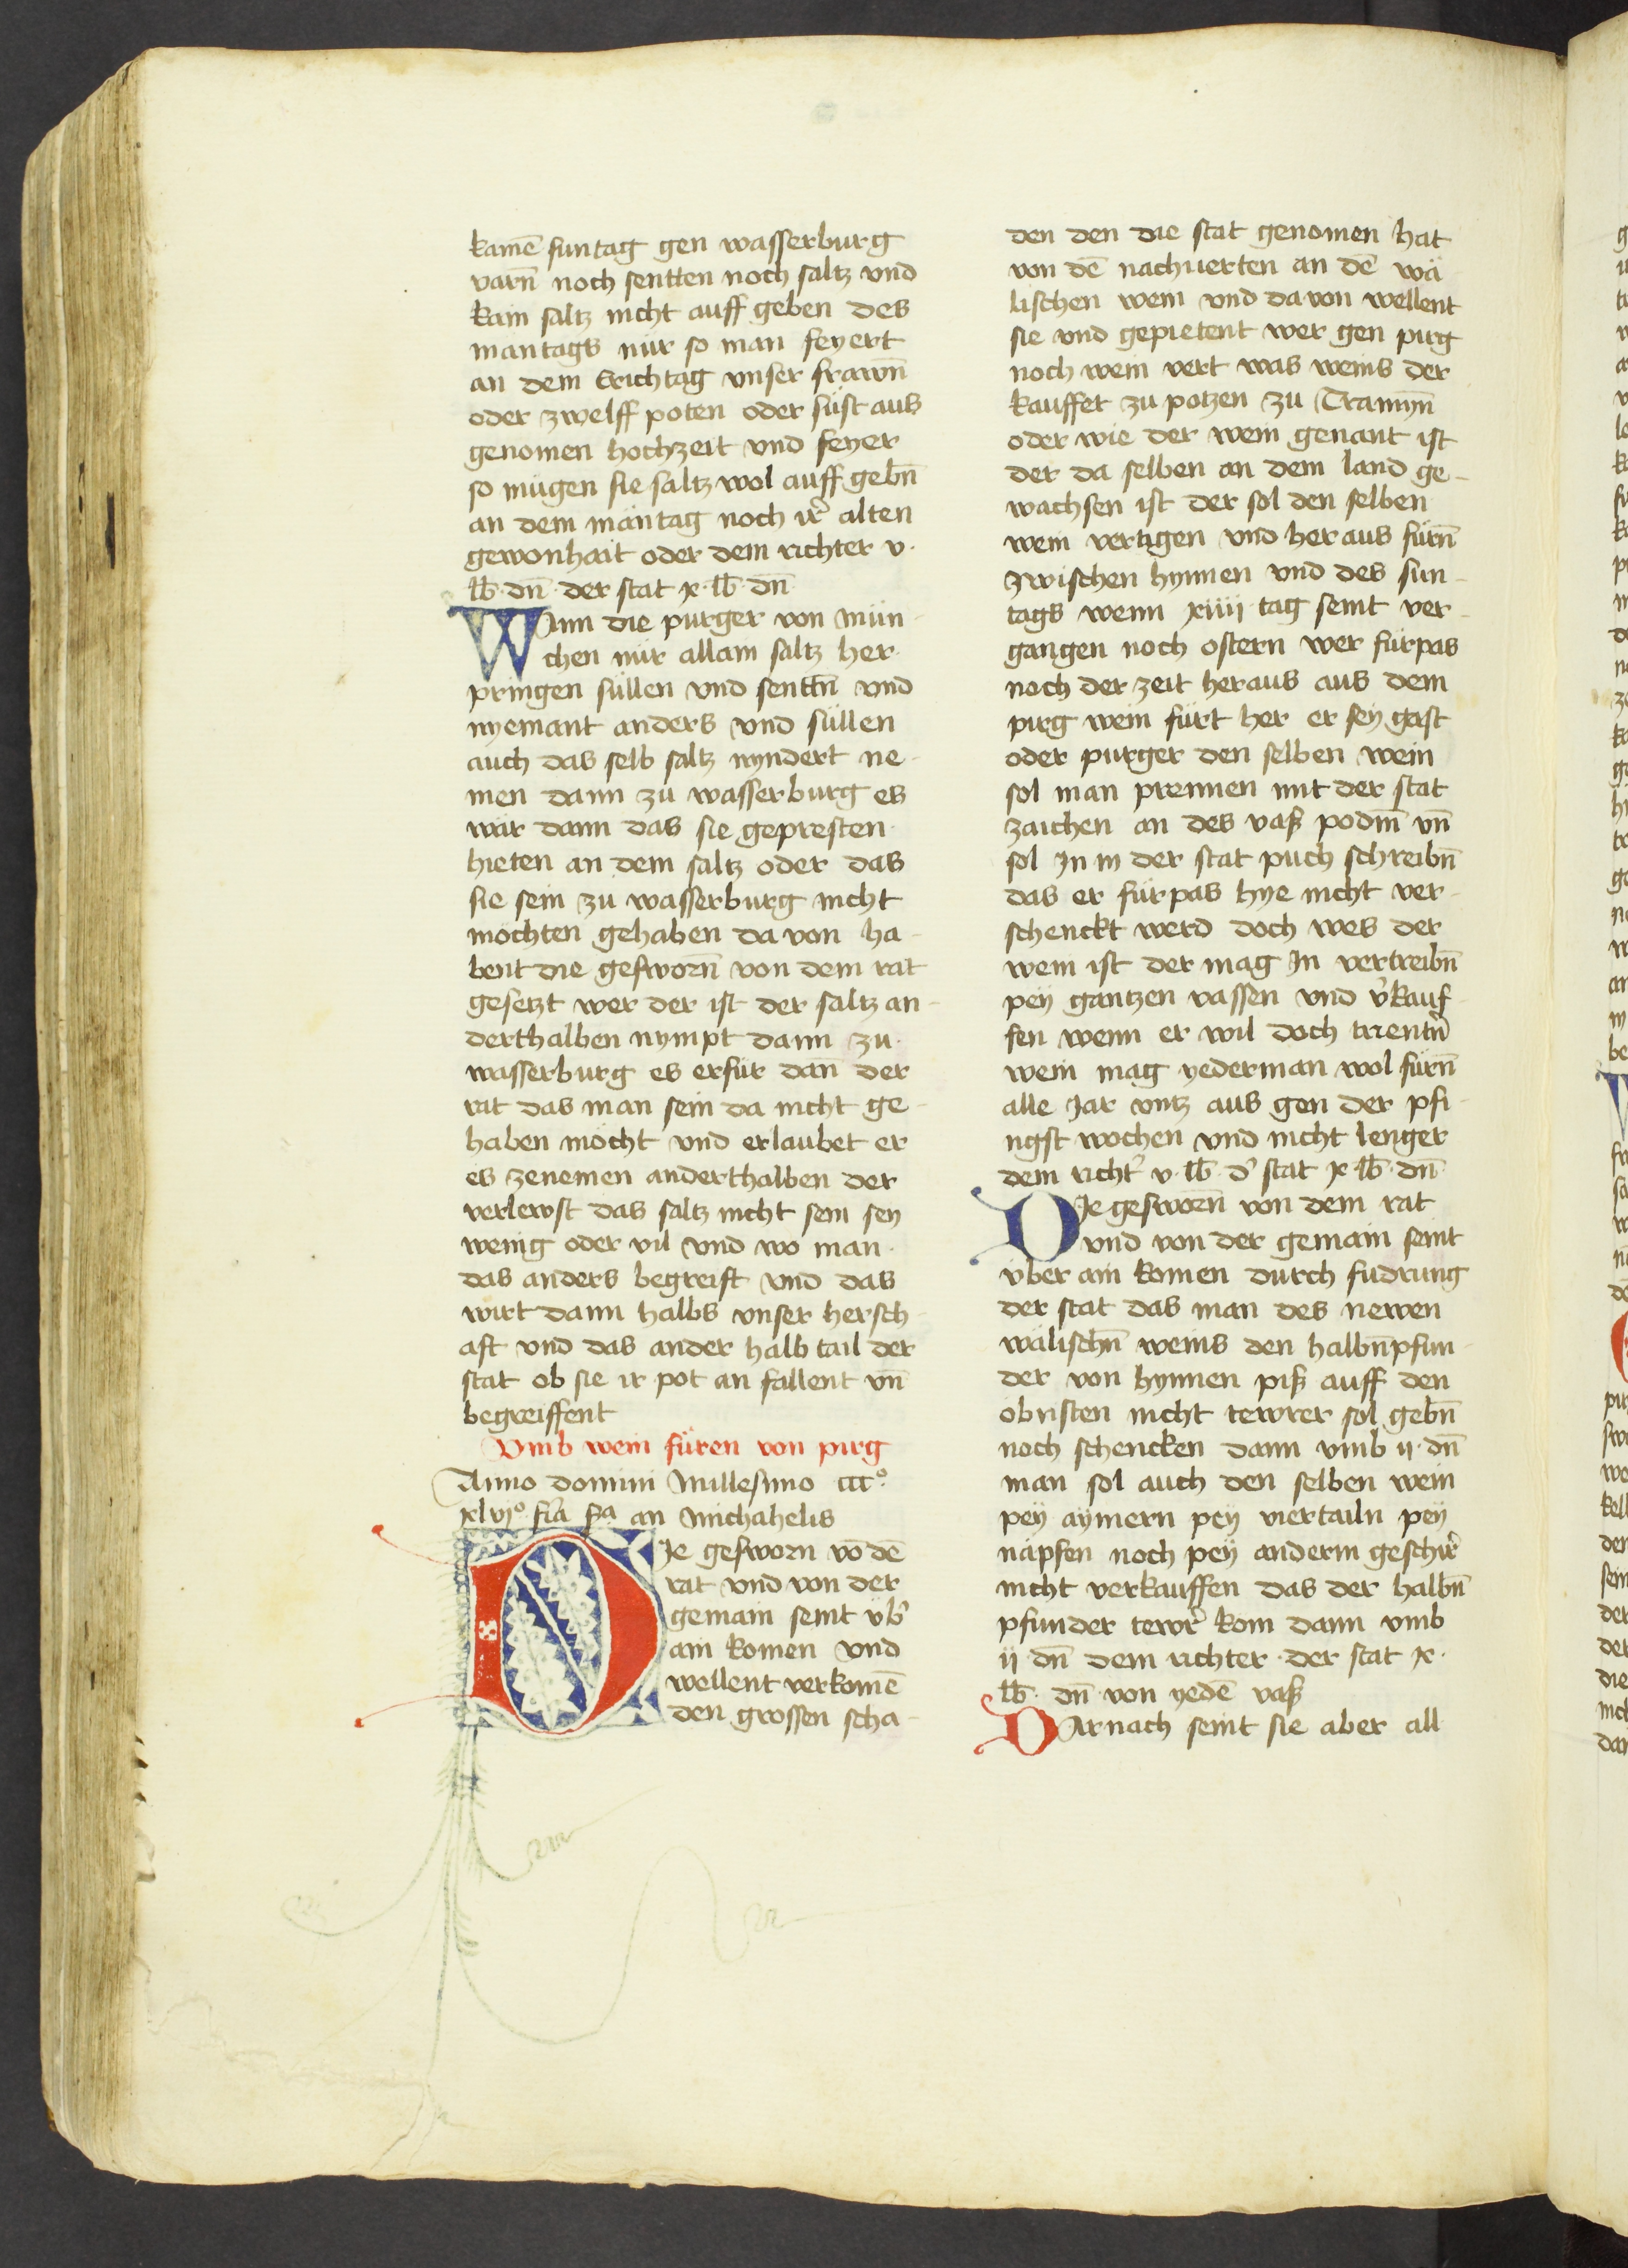 kamē suntag gen wasserburg
varn̄ noch sentten noch saltz vnd
kain saltz nicht auff geben des
mäntags nür so man feyert
an dem Erichtag vnser frawn̄
oder zwelff poten oder süst aus
genomen hochzeit vnd feyer
so mügen sie saltz wol auff gebn̄
an dem mäntag noch ir̉ alten
gewonhait oder dem richter v·
lb̄ dn̄ der stat x lb̄ dn̄
Wann die purger von mün-
chen nür allain saltz her
pringen süllen vnd senttn̄ vnd
nyemant anders vnd süllen
auch das selb saltz nyndert ne-
men dann zü wasserburg es
wär dann das sie gepresten
hieten an dem saltz oder das
sie sein zu wasserburg nicht
möchten gehaben da von ha-
bent die gesworn̄ von dem rat
gesetzt wer der ist der saltz an-
derthalben nympt dann zu
wasserburg es erfür dan̄ der
rat das man sein da nicht ge-
haben möcht vnd erlaubet er
es zenemen anderthalben der
verlewst das saltz nicht sein sey
wenig oder vil vnd wo man
das anders begreift vnd das
wirt dann halbs vnser hersch-
aft vnd das ander halb tail der
stat ob sie ir pot an fallent vn̄
begreiffent
Vmb wein füren von pirg
Anno domini Millesimo ccc°
xlvj° fr̄ia sc̄da an Michahelis
Die gesworn vō dē
rat vnd von der
gemain seint vb̉
ain komen vnd
wellent verkomē
den grossen scha-
den den die stat genomen hat
von dē nachuerten an dē wä
lischen wein vnd da von wellent
sie vnd gepietent wer gen pirg
noch wein vert was weins der
kauffet zu potzen zu Tramyn̄
oder wie der wein genant ist
der da selben an dem land ge-
wachsen ist der sol den selben
wein vertigen vnd her aus fürn̄
zwischen hynnen vnd des sun-
tags wenn xiiij tag seint ver-
gangen noch ostern wer fürpas
noch der zeit heraus aus dem
pirg wein fürt her er sey gast
oder purger den selben wein
sol man prennen mit der stat
zaichen an des vaß podm̄ vn̄
sol jn in der stat puch schreibn̄
das er fürpas hye nicht ver-
schenckt werd doch wes der
wein ist der mag jn vertreibn̄
pey gantzen vassen vnd v̉kauf
fen wenn er wil doch trientn̉
wein mag yederman wol fürn̄
alle jar vntz aus gen der pfi-
ngst wochen vnd nicht lenger
dem richt̉ v lb̄ d̉ stat x lb̄ dn̄
Die gesworn̄ von dem rat
vnd von der gemain seint
vber ain komen durch fudrung
der stat das man des newen
wälischn̄ weins den halbn̄ pfun-
der von hynnen piß auff den
obristen nicht tewrer sol gebn̄
noch schencken dann vmb ij dn̄
man sol auch den selben wein
pey aymern pey viertailn pey
näpfen noch pey anderm geschir̉
nicht verkauffen das der halbn̄
pfunder tewr̉ kom dann vmb
ij dn̄ dem richter der stat x
lb̄ dn̄ von yedē vaß
Darnach seint sie aber all